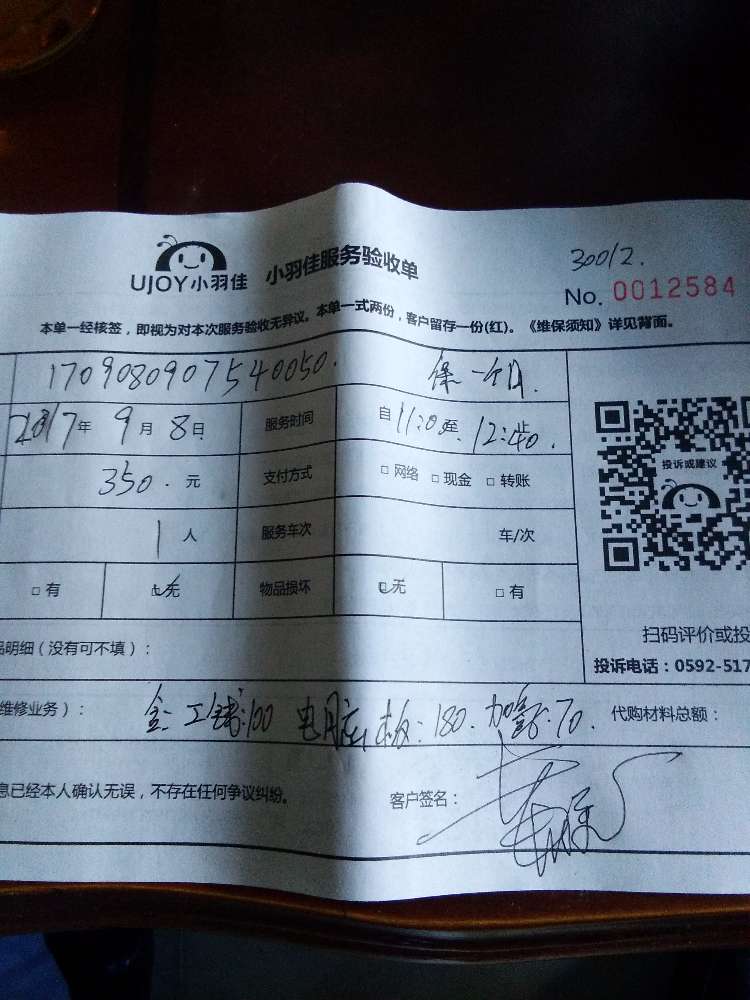 UJOY小羽佳 小羽佳服务验收单
30012.
No. 0012584
本单一经核签，即视为对本次服务验收无异议。本单一式两份，客户留存一份(红)。《维保须知》详见背面。
1709080907540050. 保一个月.
2017年9月8日 服务时间 自11:00至 12:40止.
350.元 支付方式 □ 网络 □ 现金 □ 转账
1人 服务车次 车/次
投诉或建议
□ 有 □ 无 物品损坏 □ 无 □ 有
品明细（没有可不填）：
扫码评价或投
投诉电话：0592-517
维修业务）： 100 电脑 板：180. 70. 代购材料总额：
息已经本人确认无误，不存在任何争议纠纷。 客户签名：